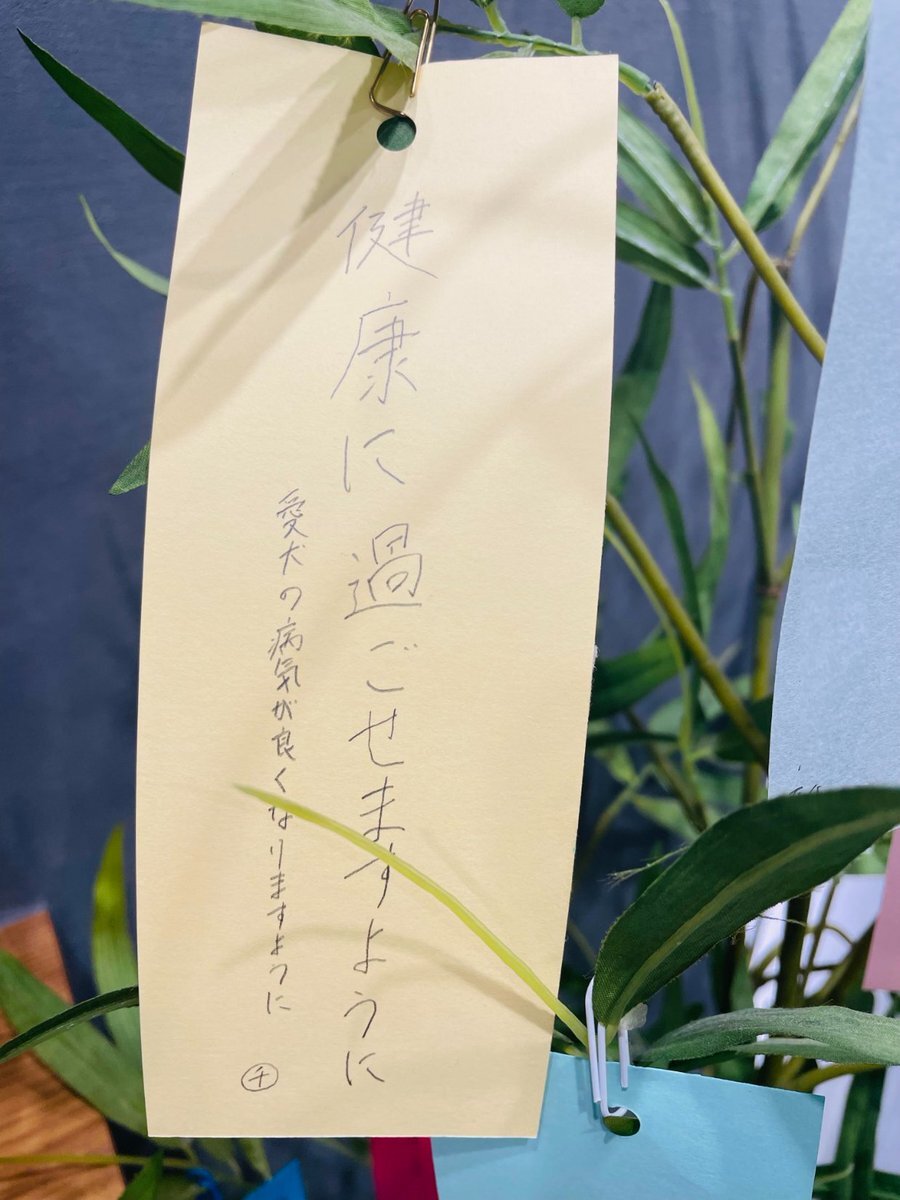 健康に過ごせますように
愛犬の病気が良くなりますように
㋠